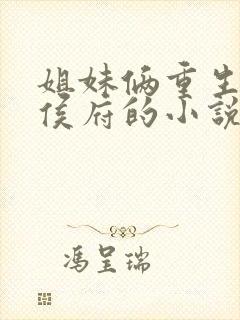 姐妹俩重生
侯府的小說
馮呈瑞